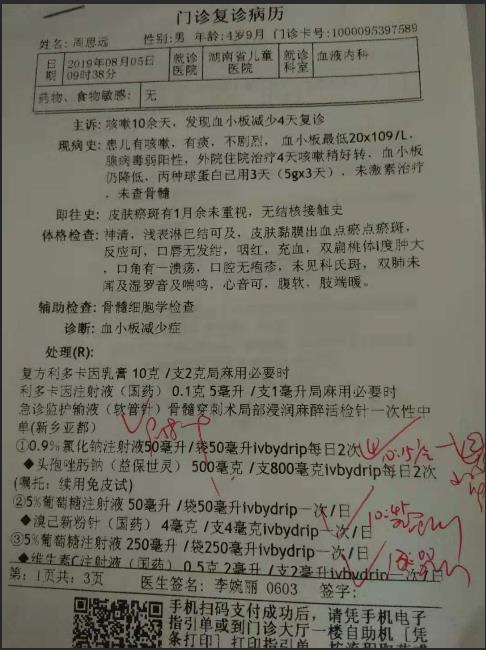 门诊复诊病历
姓名：周思远 性别:男 年龄:4岁9月 门诊卡号:1000095397589
日期 2019年08月05日 09时38分 就诊医院 湖南省儿童医院 就诊科室 血液内科
药物、食物敏感： 无
主诉: 咳嗽10余天，发现血小板减少4天复诊
现病史: 患儿有咳嗽，有痰，不剧烈， 血小板最低20x109/L，
腺病毒弱阳性，外院住院治疗4天咳嗽稍好转，血小板
仍降低，丙种球蛋白已用3天（5gx3天），未激素治疗
，未查骨髓
即往史: 皮肤瘀斑有1月余未重视，无结核接触史
体格检查: 神清，浅表淋巴结可及，皮肤黏膜出血点瘀点瘀斑，
反应可，口唇无发绀，咽红，充血，双扁桃体I度肿大
，口角有一溃疡，口腔无疱疹，未见科氏斑，双肺未
闻及湿罗音及喘鸣，心音可，腹软，肢端暖。
辅助检查: 骨髓细胞学检查
诊断: 血小板减少症
处理(R):
复方利多卡因乳膏 10克 /支2克局麻用必要时
利多卡因注射液（国药） 0.1克 5毫升 /支1毫升局麻用必要时
急诊监护输液（软管针）骨髓穿刺术局部浸润麻醉活检针一次性中
单(新乡亚都)
①0.9%氯化钠注射液50毫升/袋50毫升ivbydrip每日2次
◆头孢唑肟钠（益保世灵） 500毫克 /支800毫克ivbydrip每日2次
(嘱托: 续用免皮试)
②5%葡萄糖注射液 50毫升 /袋50毫升ivbydrip一次/日
◆溴己新粉针（国药） 4毫克 /支4毫克ivbydrip一次/日
③5%葡萄糖注射液 250毫升 /袋250毫升ivbydrip一次/日
◆维生素C注射液（国药） 0.5克 2毫升 /支2毫升ivbydrip一次/日
第: 1页共: 3页 医生签名: 李婉丽 0603 签字:
手机扫码支付成功后，请凭手机电子
指引单或到门诊大厅一楼自助机［凭
条打印］打印指引单